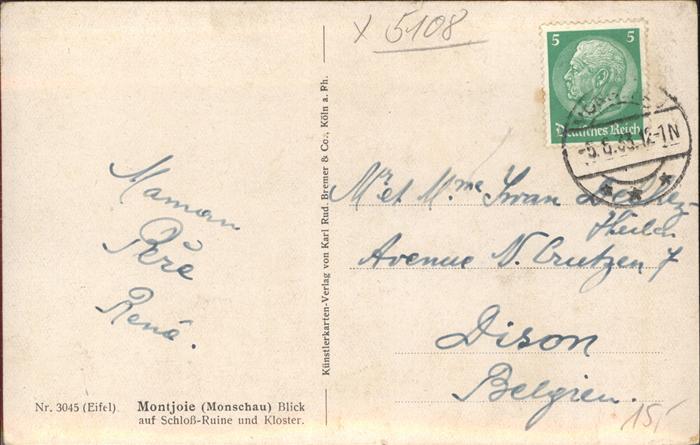 x 5108
5 5
Deutsches Reich
-5.6.33.12-1N
Maman
Père
René.
Mr et Mme Iwan
Avenue N. Crutzen 7
Dison
Belgien.
15,-
Künstlerkarten-Verlag von Karl Rud. Bremer & Co., Köln a. Rh.
Nr. 3045 (Eifel) Montjoie (Monschau) Blick
auf Schloß-Ruine und Kloster.